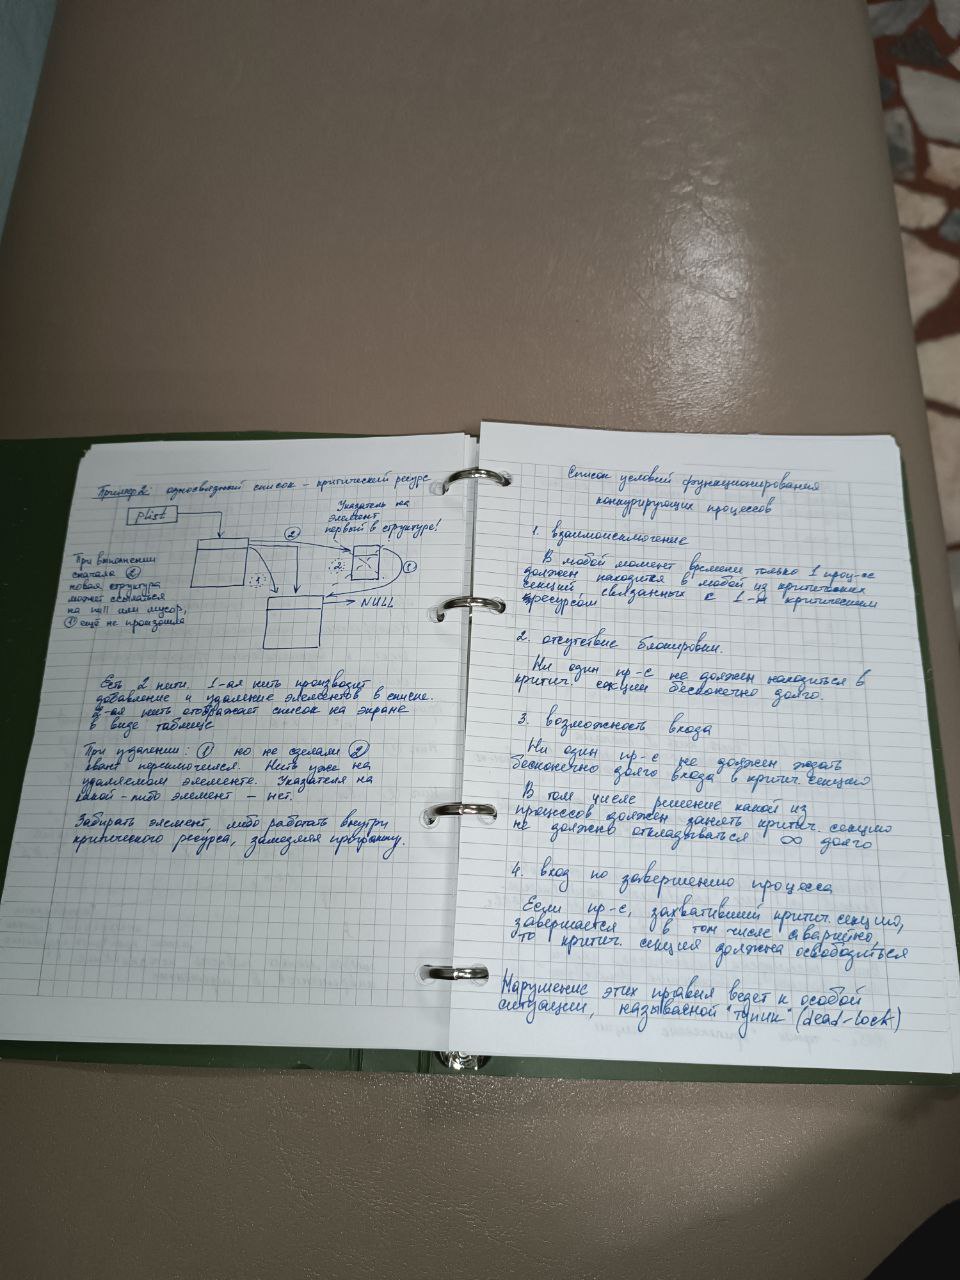 Пример 2: односвязный список – критический ресурс
pList
Указатель на
элемент
первый в структуре!
2
При выполнении
сначала 2
новая структура
может ссылаться
на null или мусор,
1 ещё не произошла
1
2
1
NULL
Есть 2 нити. 1-ая нить производит
добавление и удаление элементов в списке.
2-ая нить отображает список на экране
в виде таблицы
При удалении: 1 но не сделали 2
квант переключился. Нить уже на
удаляемом элементе. Указателя на
какой-либо элемент – нет.
Забирать элемент, либо работать внутри
критического ресурса, замедляя программу.
Список условий функционирования
конкурирующих процессов
1. взаимоисключение
В любой момент времени только 1 проц-сс
должен находится в любой из критических
секций связанных с 1-м критическим
ресурсом
2. отсутствие блокировки.
Ни один пр-с не должен находиться в
критич. секции бесконечно долго.
3. возможность входа
Ни один пр-с не должен ждать
бесконечно долго входа в критич. секцию
В том числе решение какой из
процессов должен занять критич. секцию
не должно откладываться ∞ долго
4. вход по завершению процесса
Если пр-с, захвативший критич. секцию,
завершается в том числе аварийно,
то критич. секция должна освободиться
Нарушение этих правил ведет к особой
ситуации, называемой "тупик" (dead-lock)